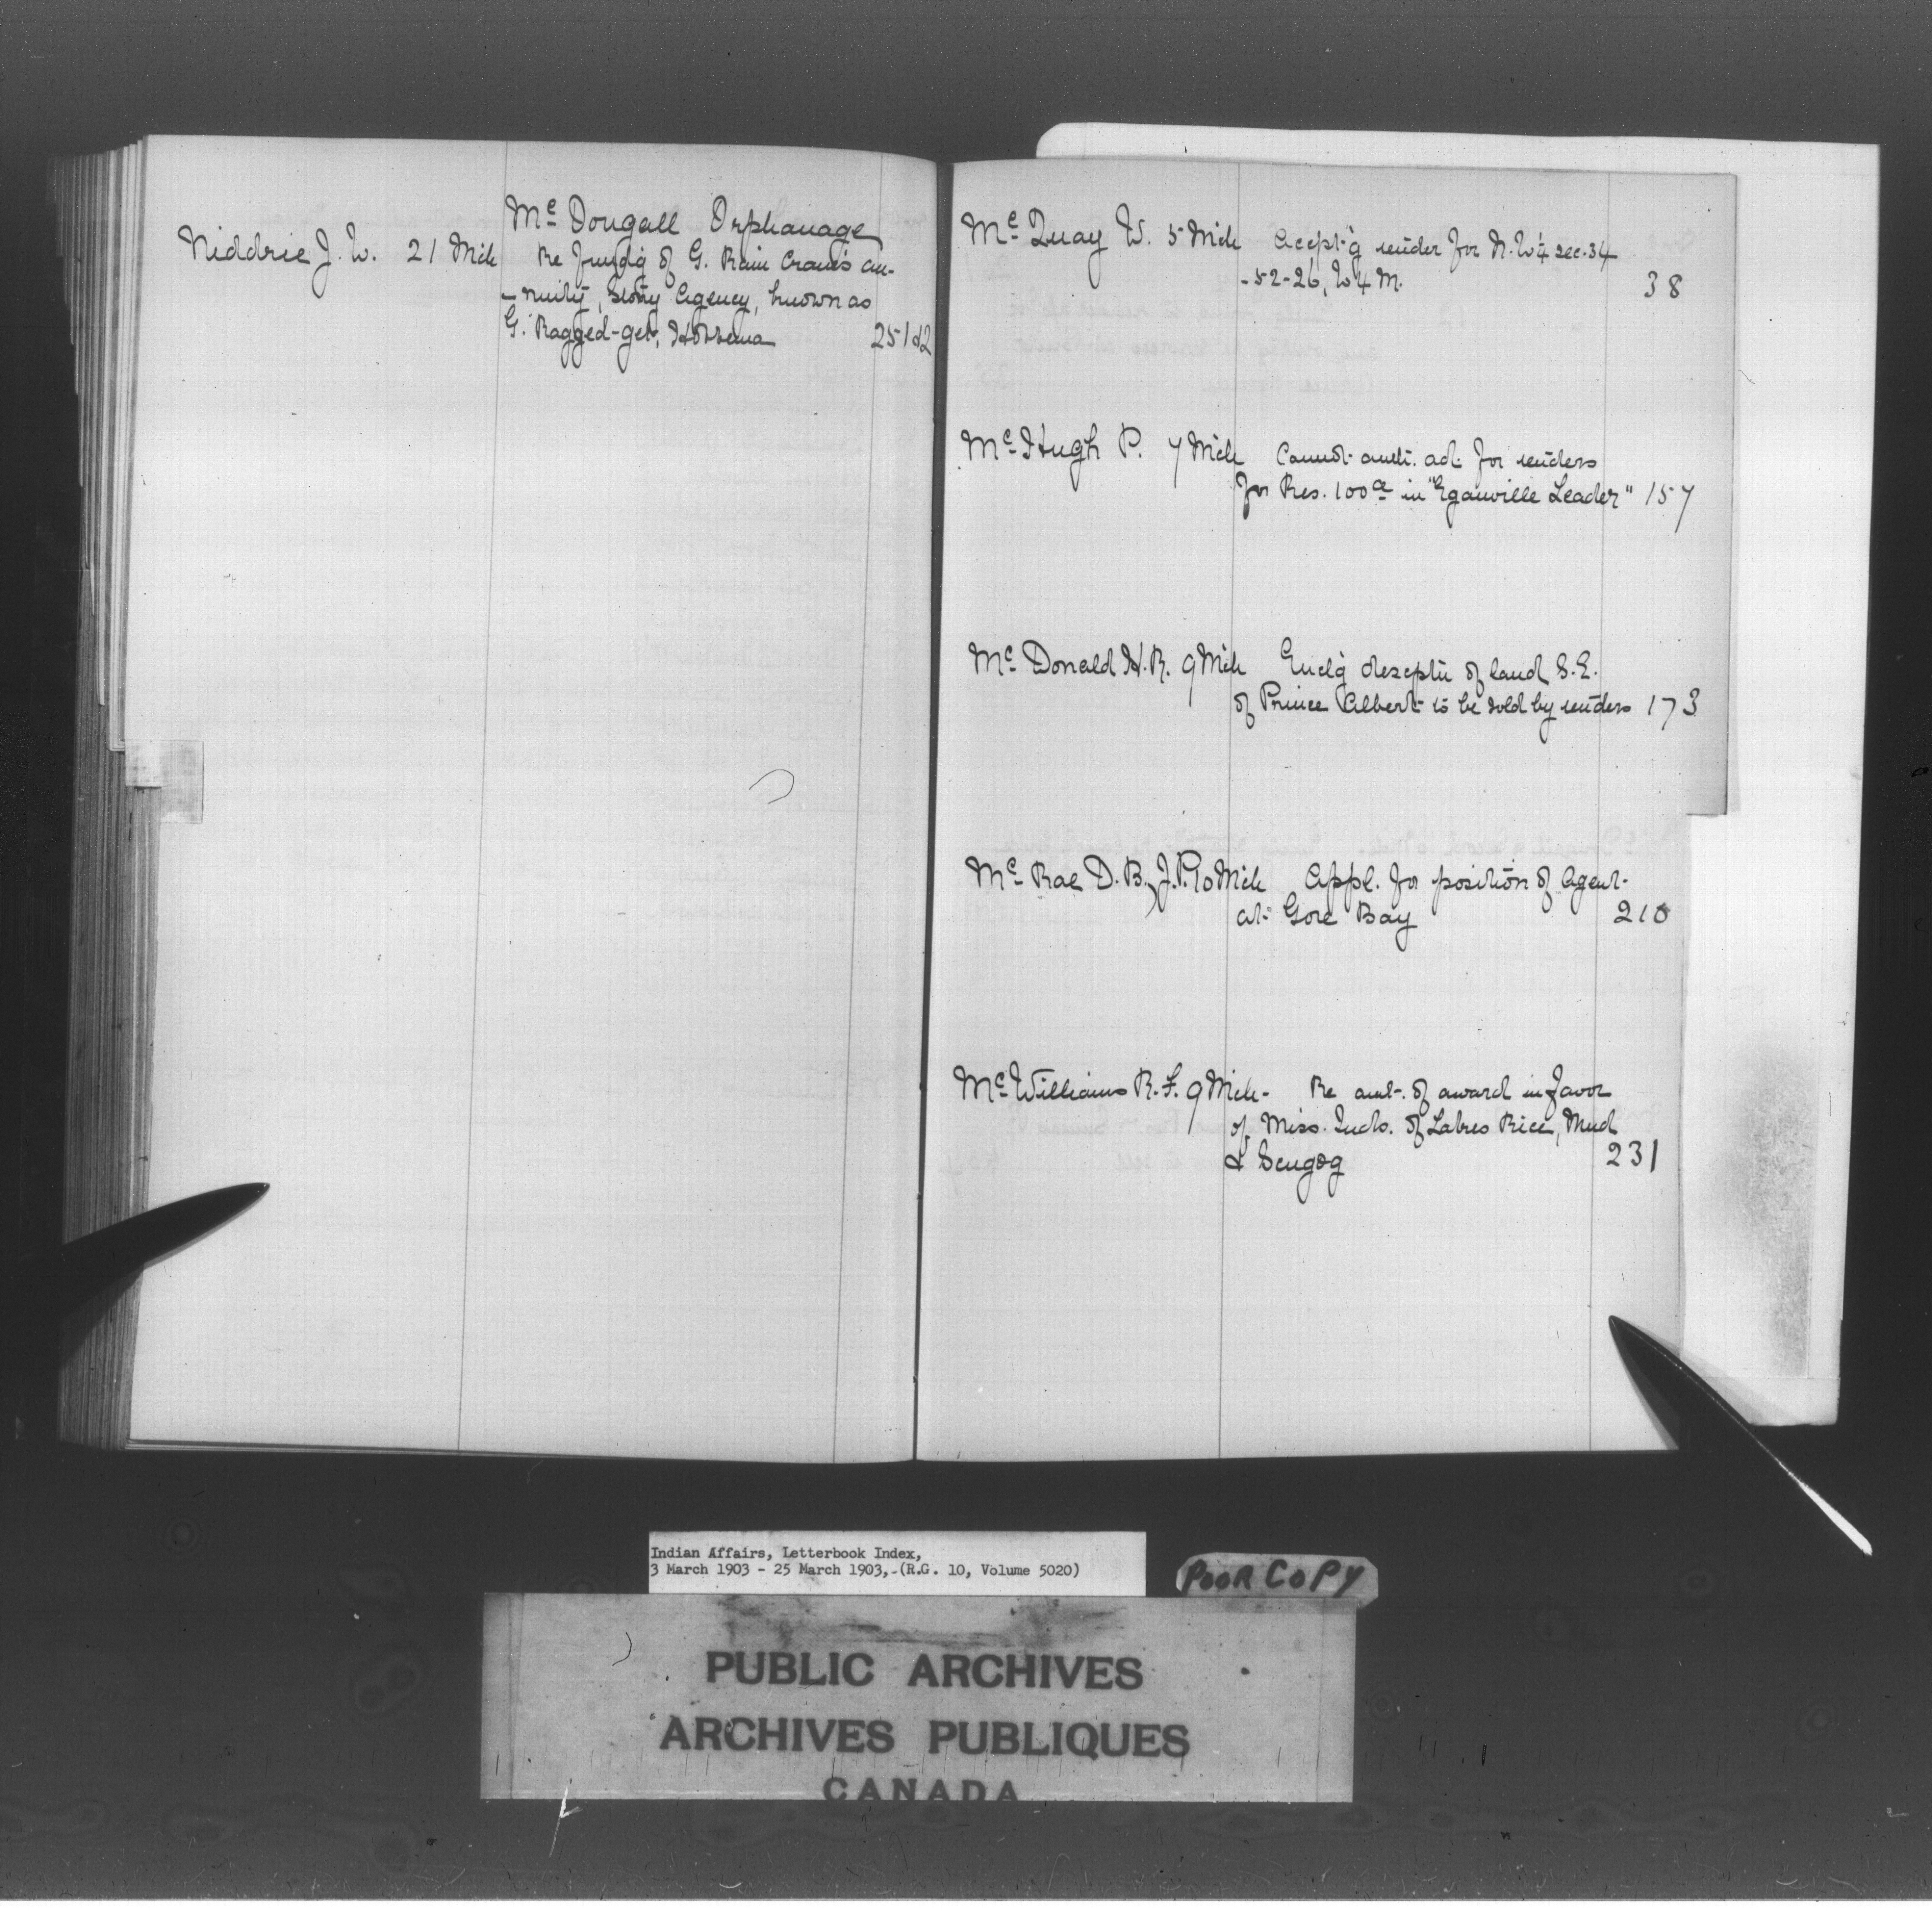 Mc Dougall Orphanage
Niddrie J. W. 21 Mch Re fundg of G. Rain Crows an-
-nuity, Stony Agency, known as
G. Ragged-get, 251½
Mc Quay W. 5 Mch Accept'g tender for N.W¼ sec. 34
-52-26, W4M. 38
Mc Hugh P. 7 Mch Cannot auth. adt. for tenders
for Res. 100a in "Eganville Leader" 157
Mc Donald H.R. 9 Mch Encl'g descptn of land S.E.
of Prince Albert to be sold by tenders 173
Mc Rae D. B., J.P. 10 Mch Appl. for position of Agent
at Gore Bay 210
Mc Williams R. F. 9 Mch - Re amt. of award in favor
of Miss. Inds. of Lakes Rice, Mud
& Scugog 231
Indian Affairs, Letterbook Index,
3 March 1903 - 25 March 1903,-(R.G. 10, Volume 5020)
POOR COPY
PUBLIC ARCHIVES
ARCHIVES PUBLIQUES
CANADA